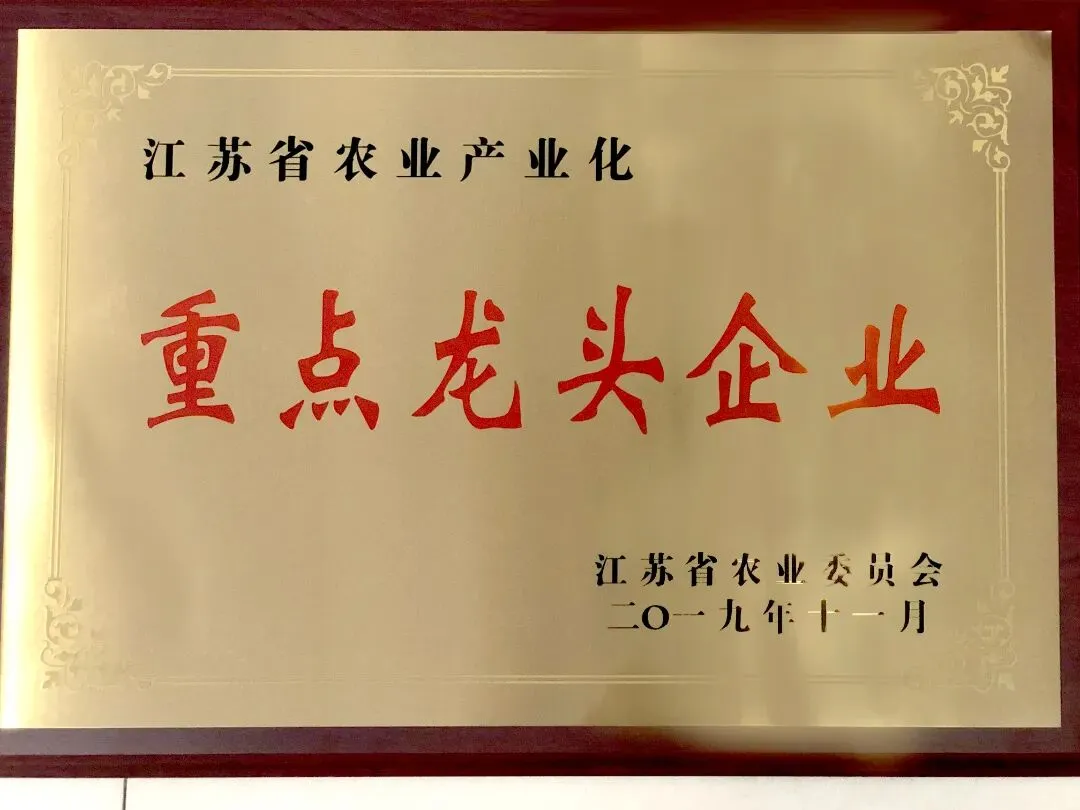 江苏省农业产业化
重点龙头企业
江苏省农业委员会
二〇一九年十一月